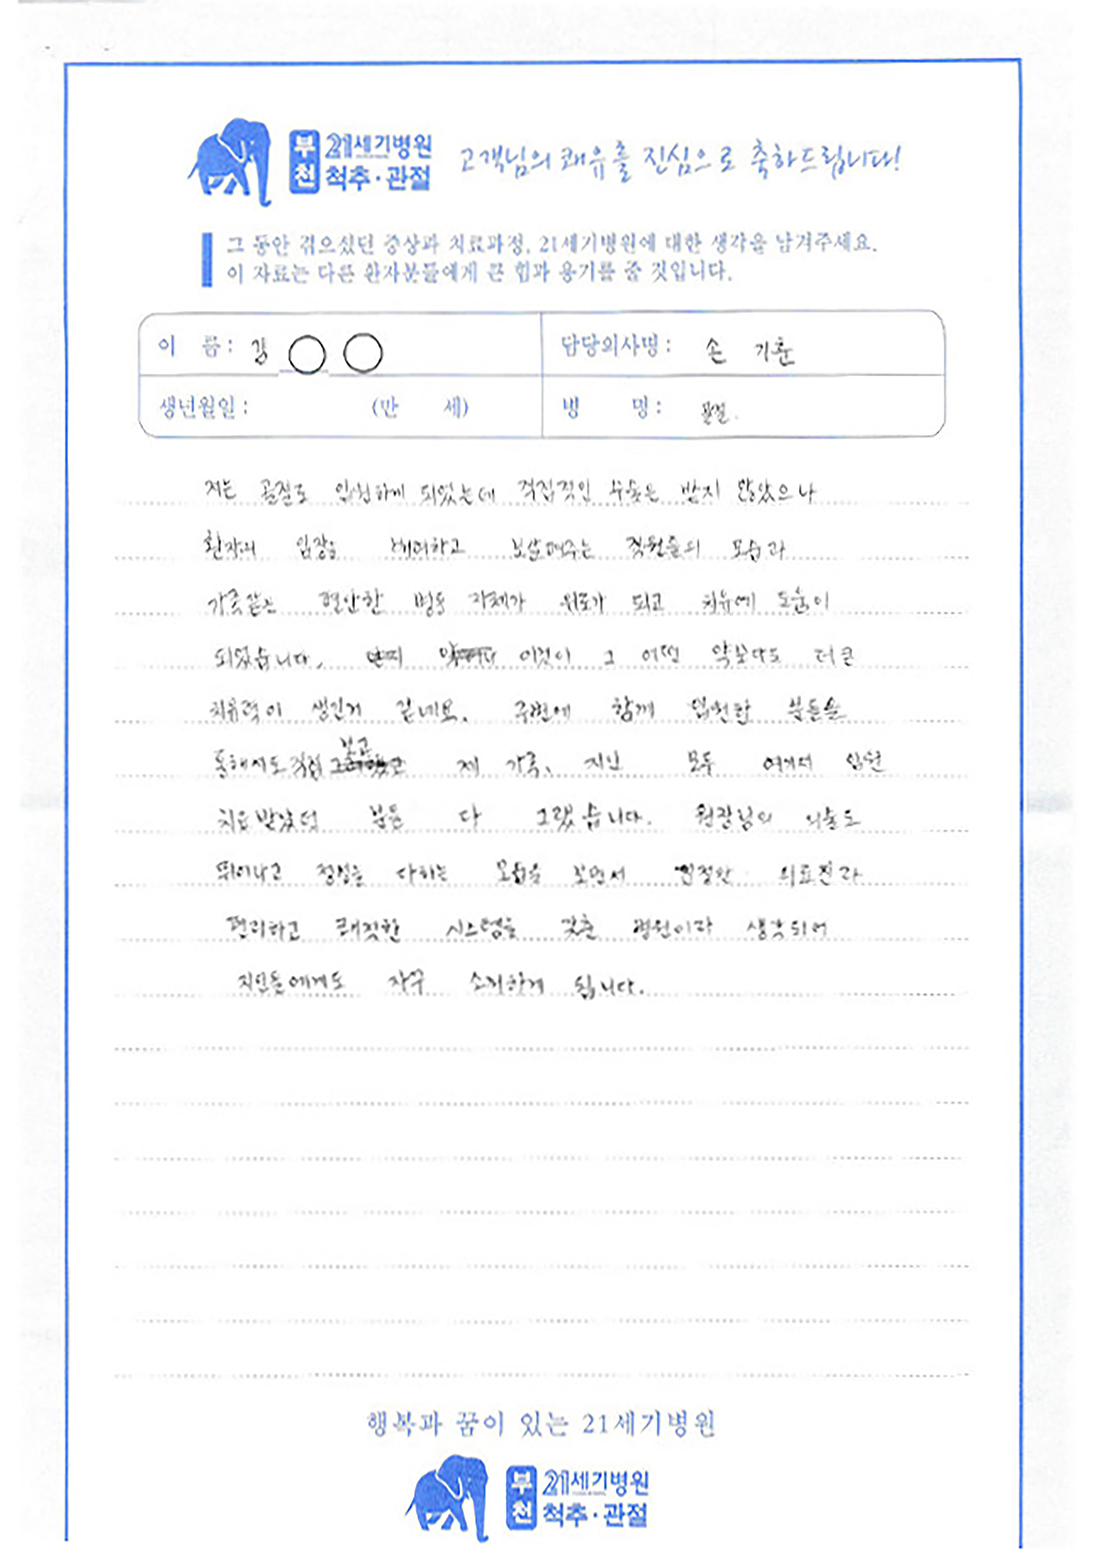 부천 21세기병원 척추·관절
고객님의 쾌유를 진심으로 축하드립니다!
그 동안 겪으셨던 증상과 치료과정, 21세기병원에 대한 생각을 남겨주세요.
이 자료는 다른 환자분들에게 큰 힘과 용기를 줄 것입니다.
이 름 : 김 ○ ○ 담당의사명 : 손 기훈
생년월일 : (만 세) 병 명 : 골절.
저는 골절로 입원하게 되었는데 직접적인 수술은 받지 않았으나
환자의 입장을 배려하고 보살펴주는 직원들의 모습과
가족같은 편안한 병동 자체가 위로가 되고 치유에 도움이
되었습니다. 이것이 그 어떤 약보다도 더 큰
치유력이 생긴거 같네요. 주변에 함께 입원한 분들을
통해서도 직접 보고 제 가족, 지인 모두 여기서 입원
치료 받았던 분들 다 그랬습니다. 원장님의 의술도
뛰어나고 정성을 다하는 모습을 보면서 친절한 의료진과
편리하고 쾌적한 시스템을 갖춘 병원이라 생각되어
지인들에게도 자꾸 소개하게 됩니다.
행복과 꿈이 있는 21세기병원
부천 21세기병원 척추·관절